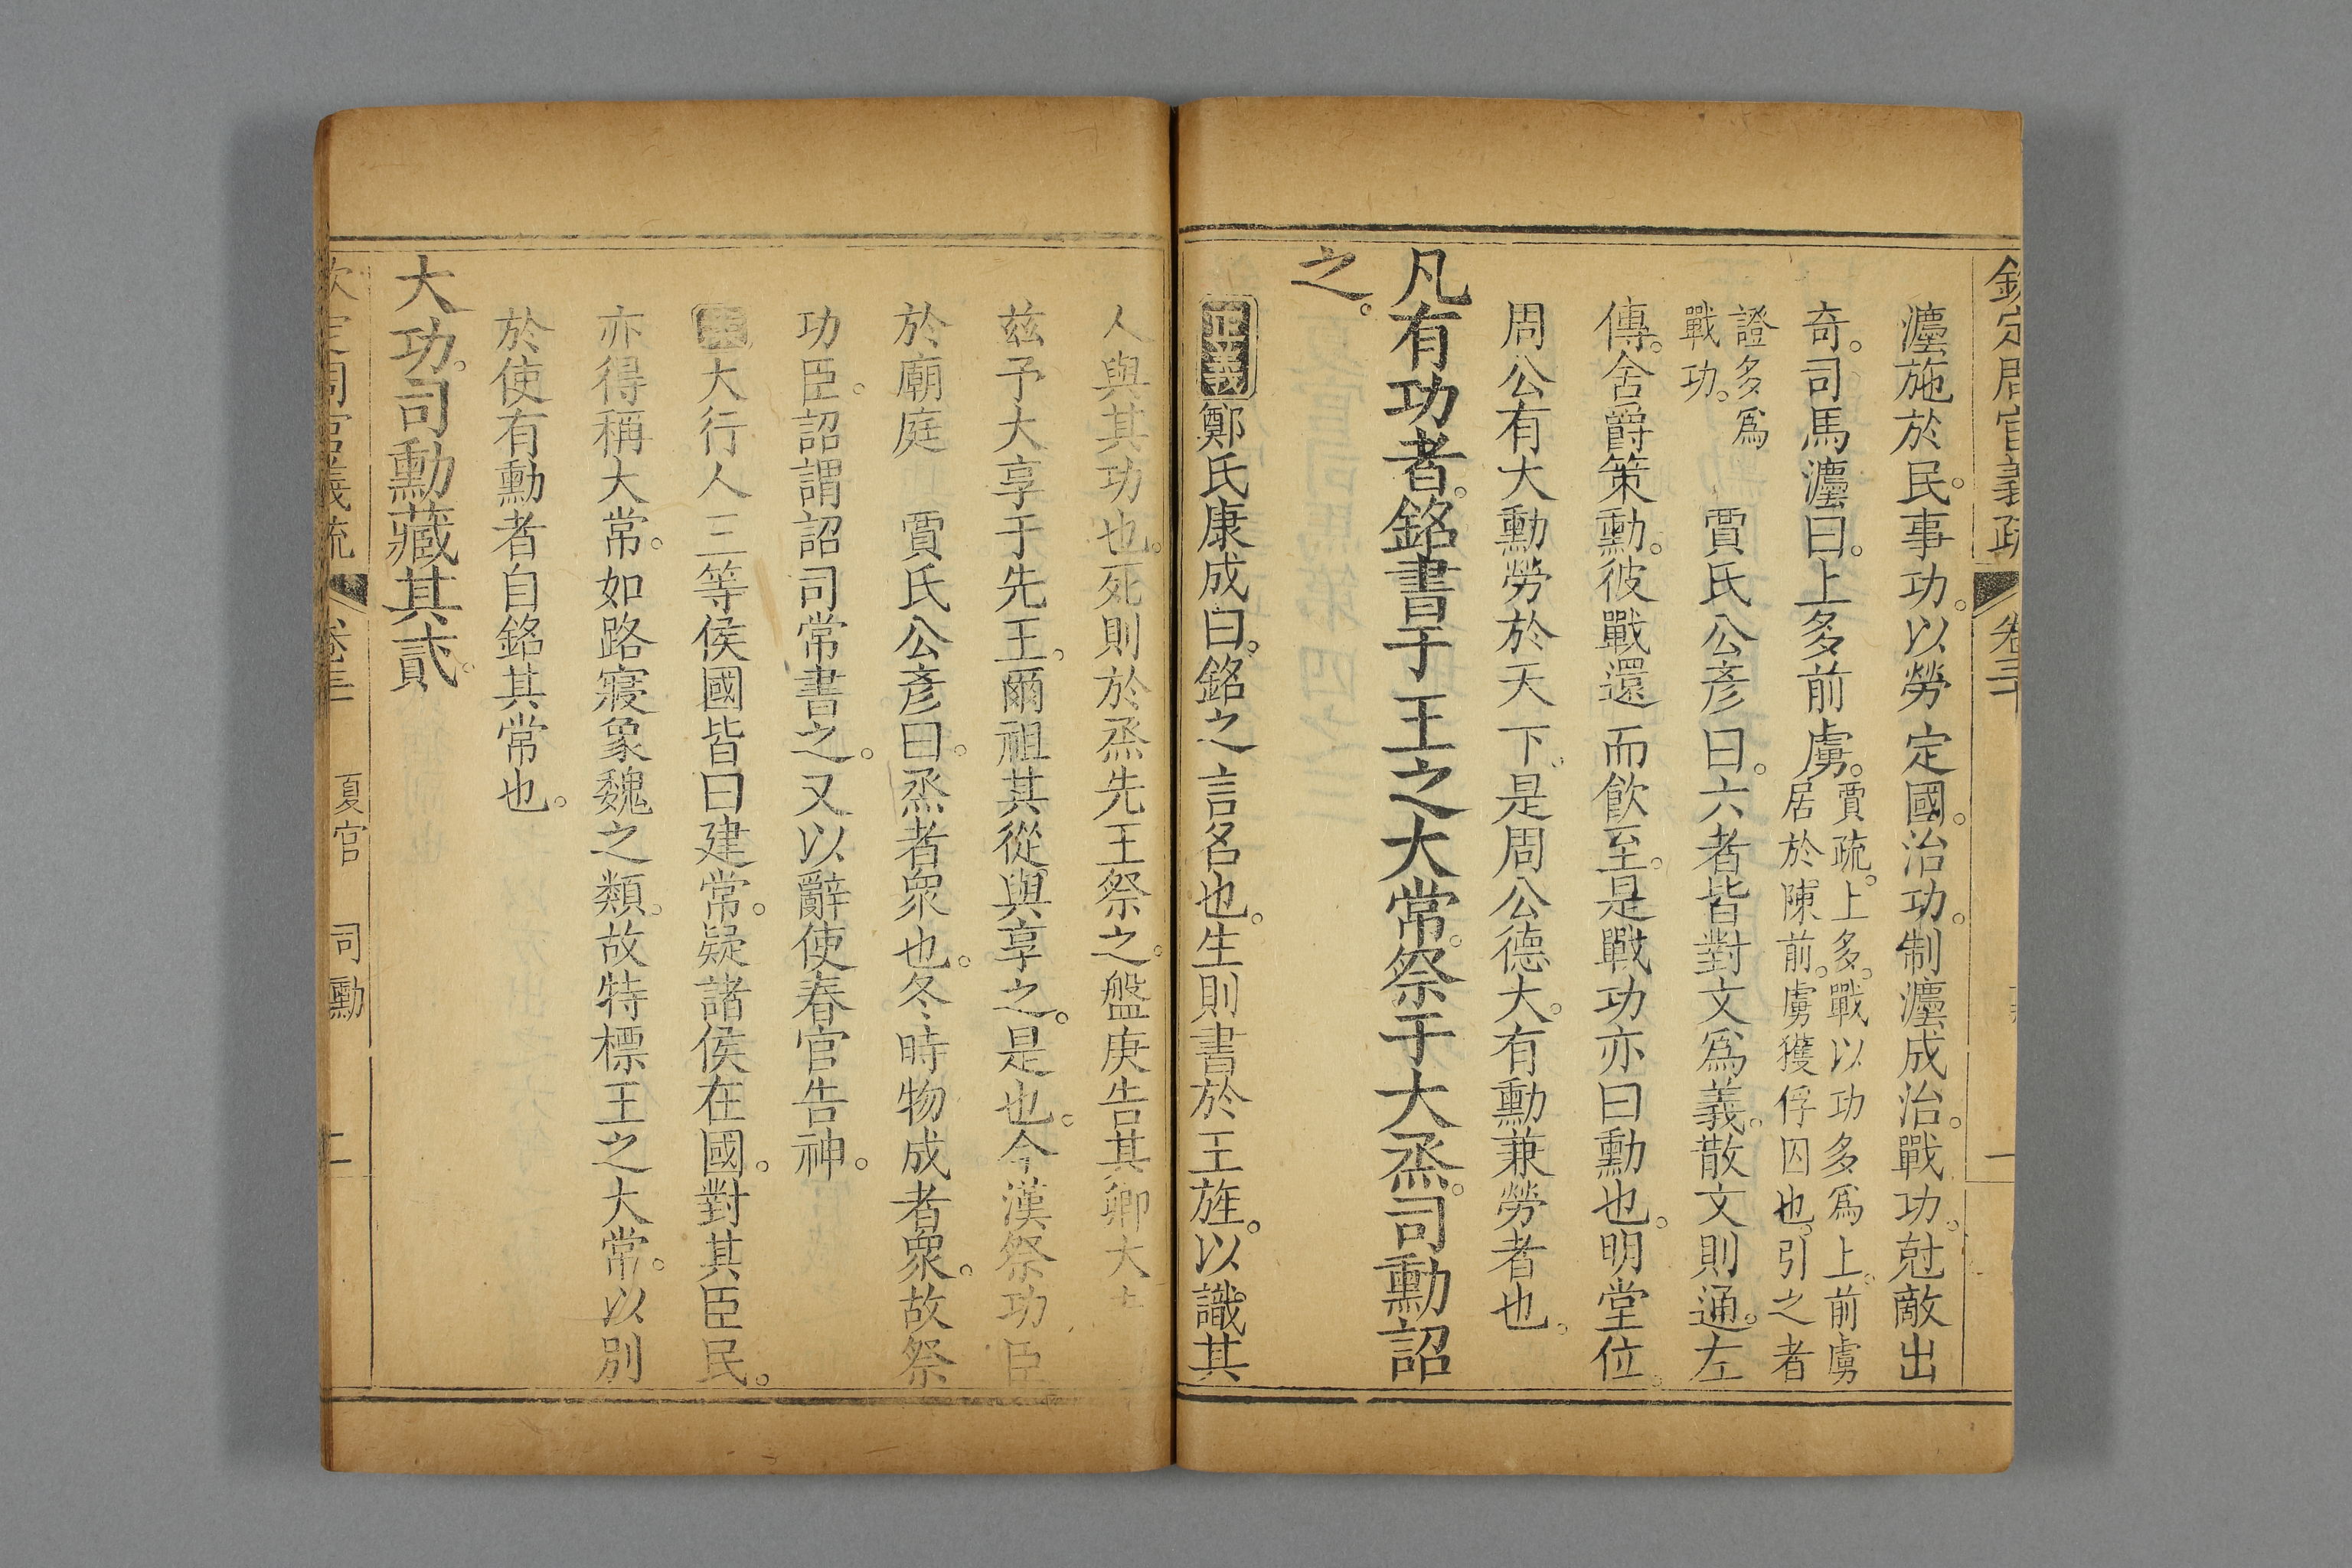 欽定周官義疏 卷三十 一
灋施於民。事功。以勞定國。治功。制灋成治。戰功。尅敵出
奇。司馬灋曰。上多前虜。賈疏。上多。戰以功多爲上。前虜
居於陳前。虜獲俘囚也。引之者
證多爲
戰功。 賈氏公彥曰。六者皆對文爲義。散文則通。左
傳。舍爵策勳。彼戰還而飮至。是戰功亦曰勳也。明堂位。
周公有大勳勞於天下。是周公德大。有勳兼勞者也。
凡有功者。銘書于王之大常。祭于大烝。司勳詔
之。
正義鄭氏康成曰。銘之言名也。生則書於王旌。以識其
人與其功也。死則於烝先王祭之。盤庚告其卿大
茲予大享于先王。爾祖其從與享之。是也。今漢祭功臣
於廟庭 賈氏公彥曰。烝者衆也。冬時物成者衆。故祭
功臣。詔謂詔司常書之。又以辭使春官告神。
大行人三等侯國皆曰建常。疑諸侯在國。對其臣民。
亦得稱大常。如路寢象魏之類。故特標王之大常。以別
於使有勳者自銘其常也。
大功。司勳藏其貳。
欽定周官義疏 卷三十 夏官 司勳 二